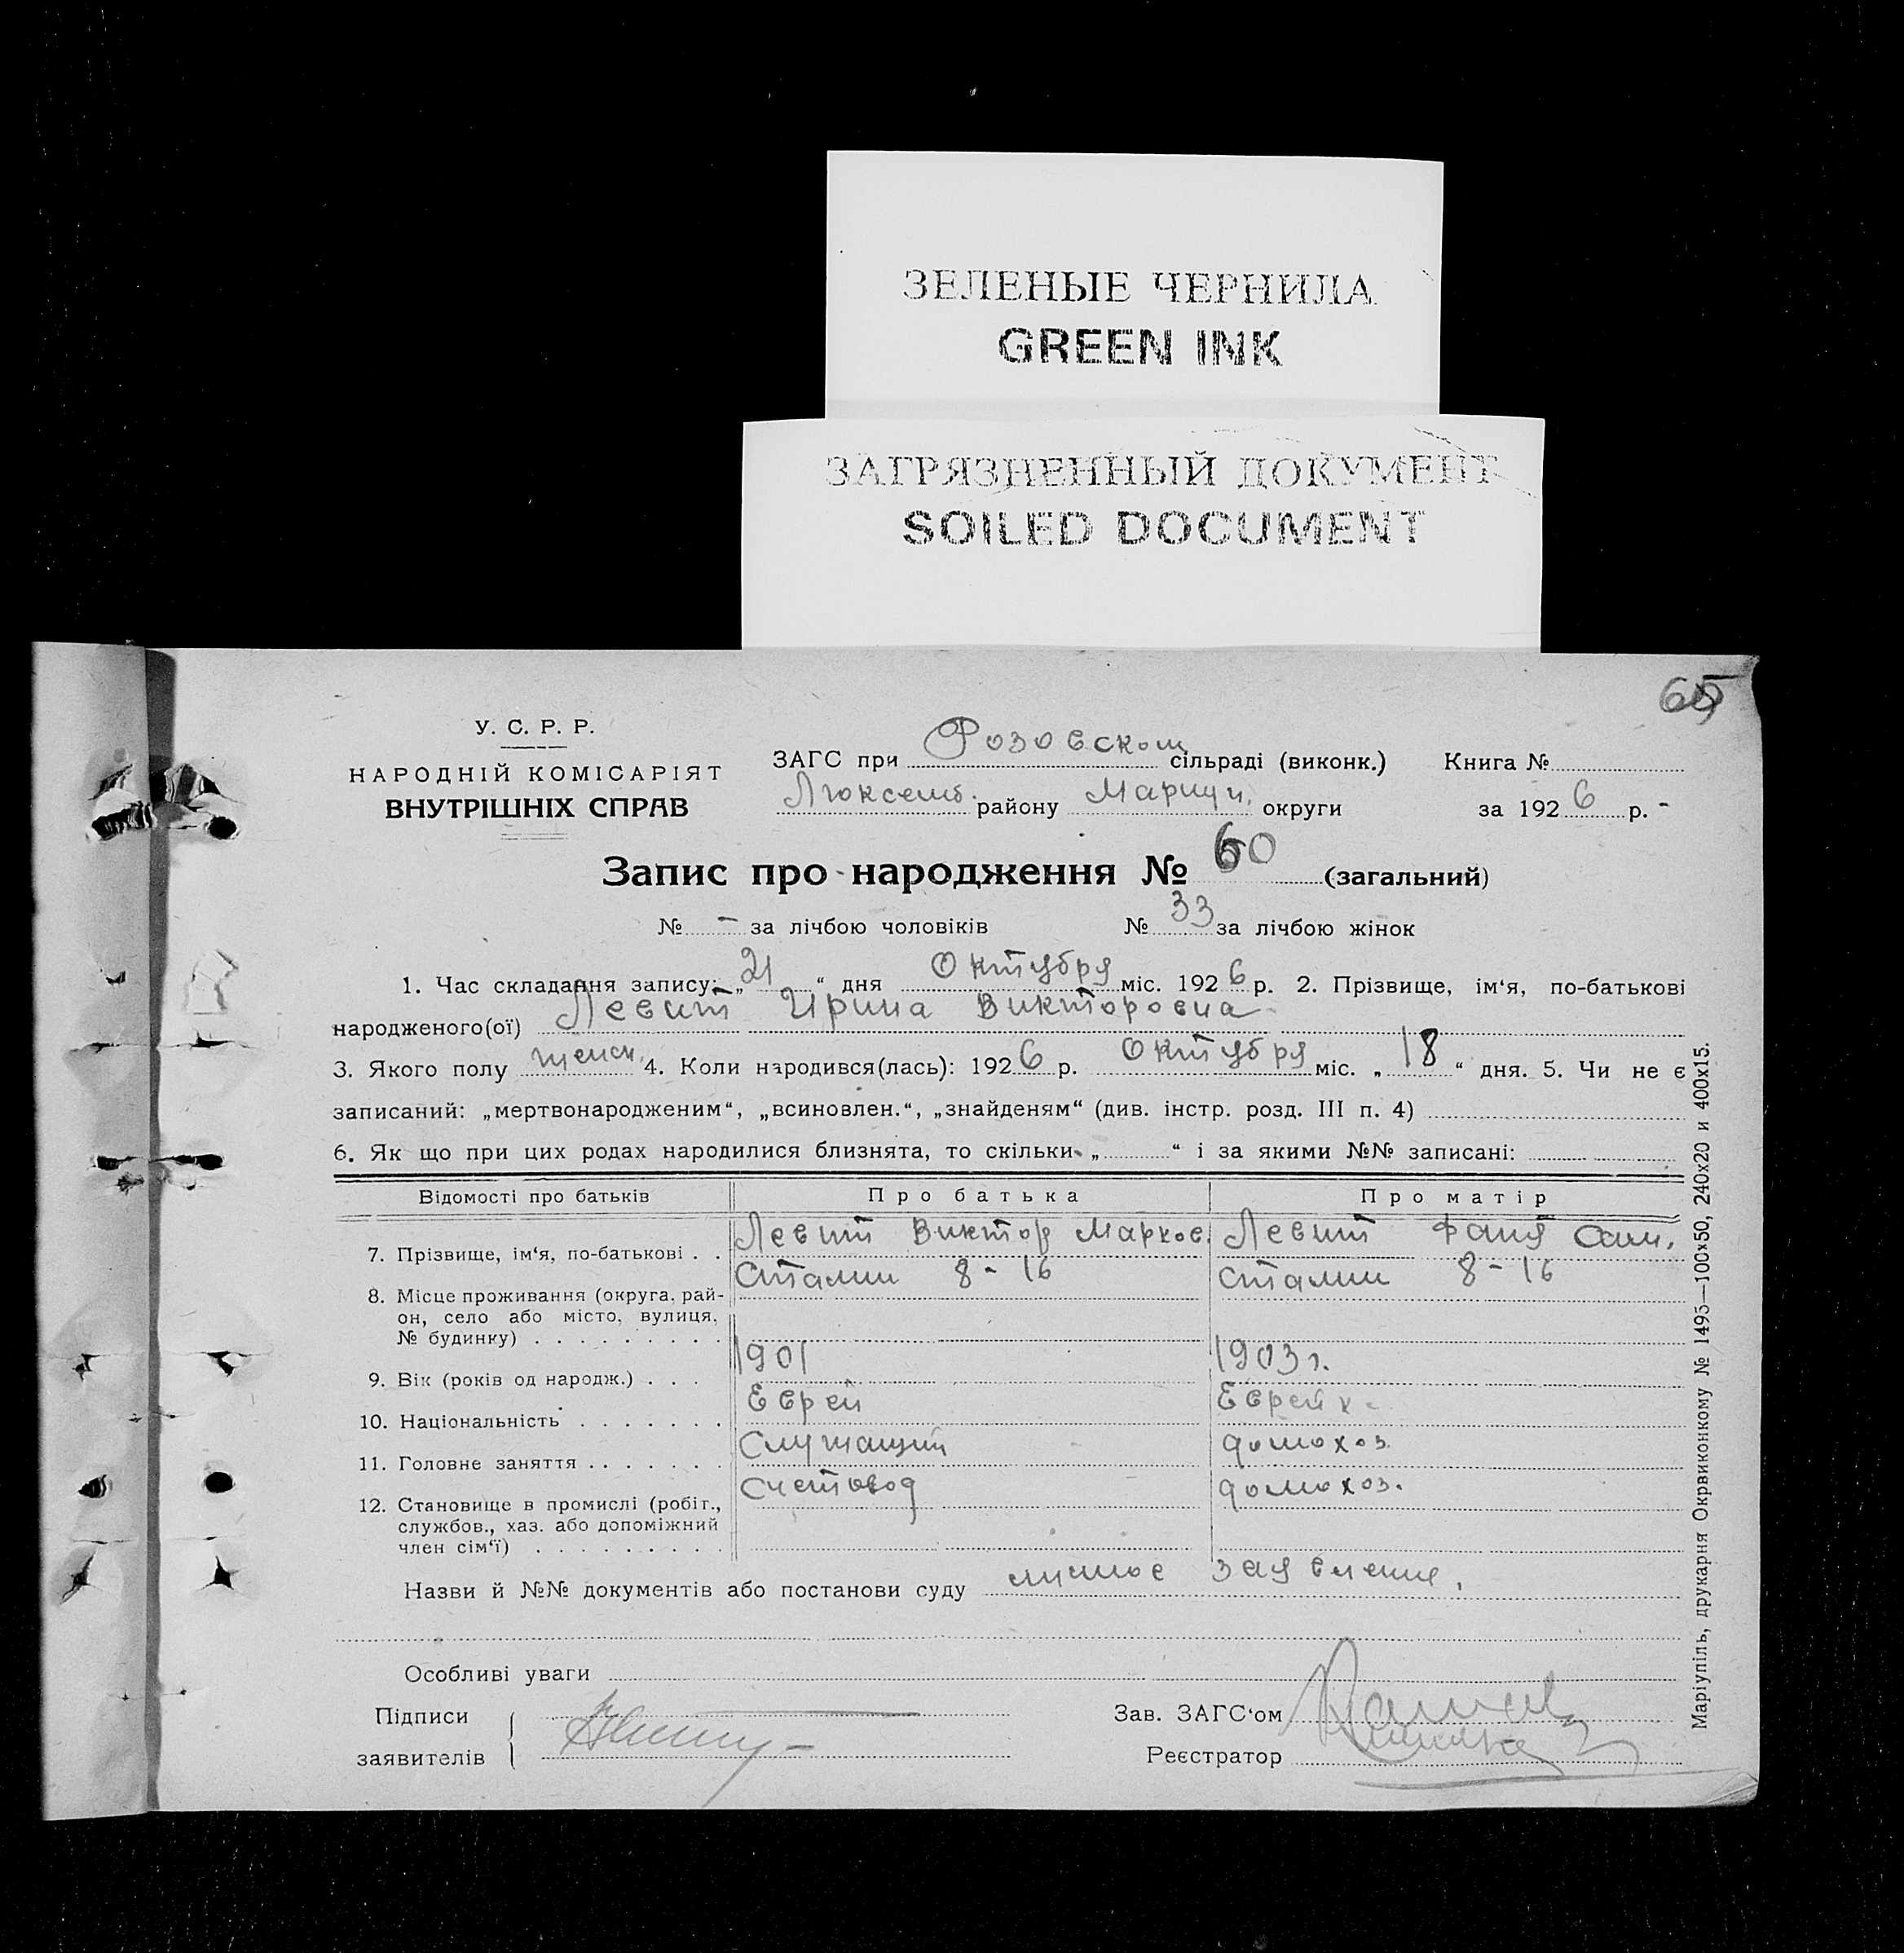 ЗЕЛЕНЫЕ ЧЕРНИЛА
GREEN INK
ЗАГРЯЗНЕННЫЙ ДОКУМЕНТ
SOILED DOCUMENT
65
У. С. Р. Р.
НАРОДНІЙ КОМІСАРІЯТ
ВНУТРІШНІХ СПРАВ
ЗАГС при Розовском сільраді (виконк.) Книга №
Люксемб. району Мариуп. округи за 1926 р.-
Запис про народження № 60 (загальний)
№ - за лічбою чоловіків № 33 за лічбою жінок
1. Час складання запису: „21“ дня Октября міс. 1926 р. 2. Прізвище, ім‘я, по-батькові
народженого(ої) Левит Ирина Викторовна
3. Якого полу женск. 4. Коли народився(лась): 1926 р. Октября міс. „18“ дня. 5. Чи не є
записаний: „мертвонародженим“, „всиновлен.“, „знайденям“ (див. інстр. розд. III п. 4)
6. Як що при цих родах народилися близнята, то скільки „ “ і за якими №№ записані:
Відомості про батьків Про батька Про матір
7. Прізвище, ім‘я, по-батькові . . Левит Виктор Марков. Левит Фаня Сам.
8. Місце проживання (округа, рай- Сталин 8-16 Сталин 8-16
он, село або місто, вулиця,
№ будинку) . . . . . . . . .
9. Вік (років од народж.) . . . 1901 1903 г.
10. Національність . . . . . . . Еврей Еврейка
11. Головне заняття . . . . . . . Служащий домохоз.
12. Становище в промислі (робіт., Счетовод домохоз.
службов., хаз. або допоміжний
член сім‘ї) . . . . . . . . .
Назви й №№ документів або постанови суду личное заявление.
Особливі уваги
Підписи
заявителів
Зав. ЗАГС‘ом
Реєстратор
Маріупіль, друкарня Окрвиконкому № 1495—100х50, 240х20 и 400х15.